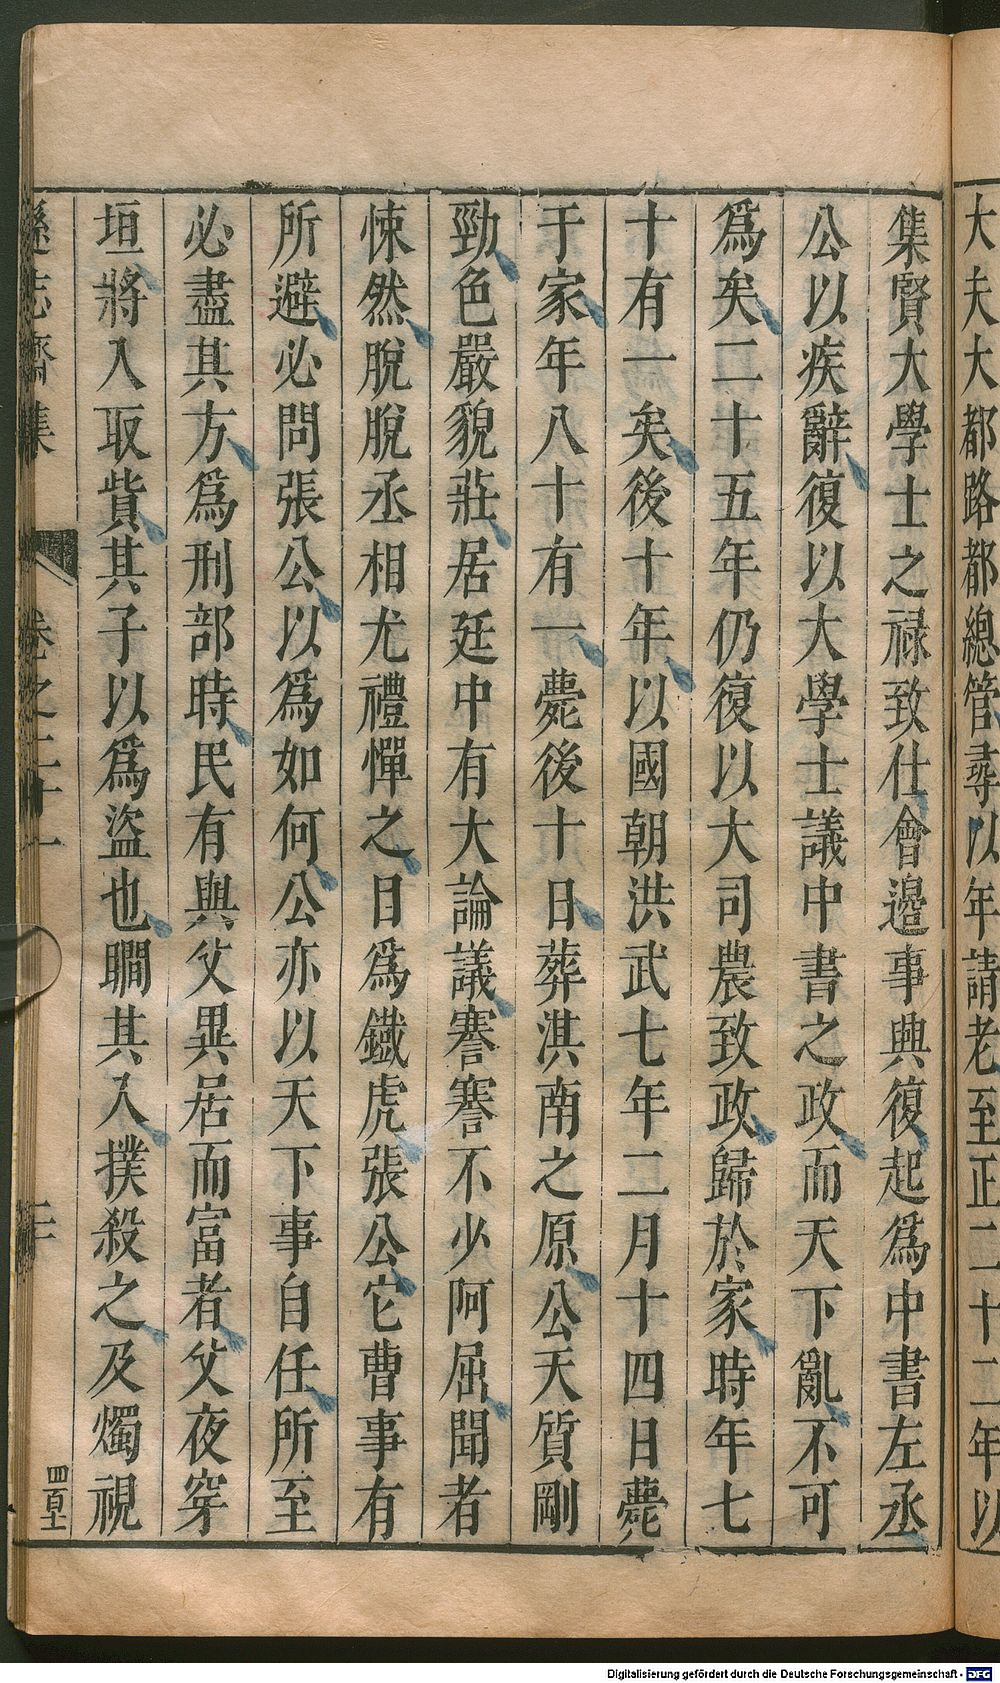 大夫大都路都總管尋以年請老至正二十二年以
集賢大學士之祿致仕會邊事興復起爲中書左丞
公以疾辭復以大學士議中書之政而天下亂不可
爲矣二十五年仍復以大司農致政歸於家時年七
十有一矣後十年以國朝洪武七年二月十四日薨
于家年八十有一薨後十日葬淇南之原公天質剛
勁色嚴貌莊居廷中有大論議謇謇不少阿屈聞者
悚然脫脫丞相尤禮憚之目爲鐵虎張公它曹事有
所避必問張公以爲如何公亦以天下事自任所至
必盡其方爲刑部時民有與父異居而富者父夜穿
垣將入取貲其子以爲盜也瞷其入撲殺之及燭視
遜志齋集 卷之二十一 三 四百十
Digitalisierung gefördert durch die Deutsche Forschungsgemeinschaft - DFG